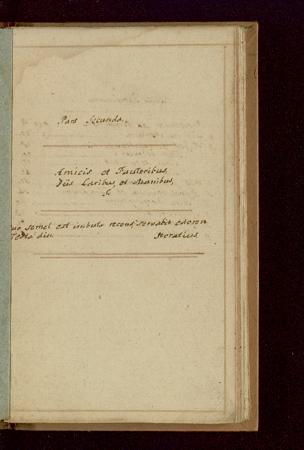 Pars Secunda.
Amicis et Fautoribus,
Diis Laribus, et Manibus,
S.
uo semel est imbuta recens servabit odorem
Testa diu. Horatius